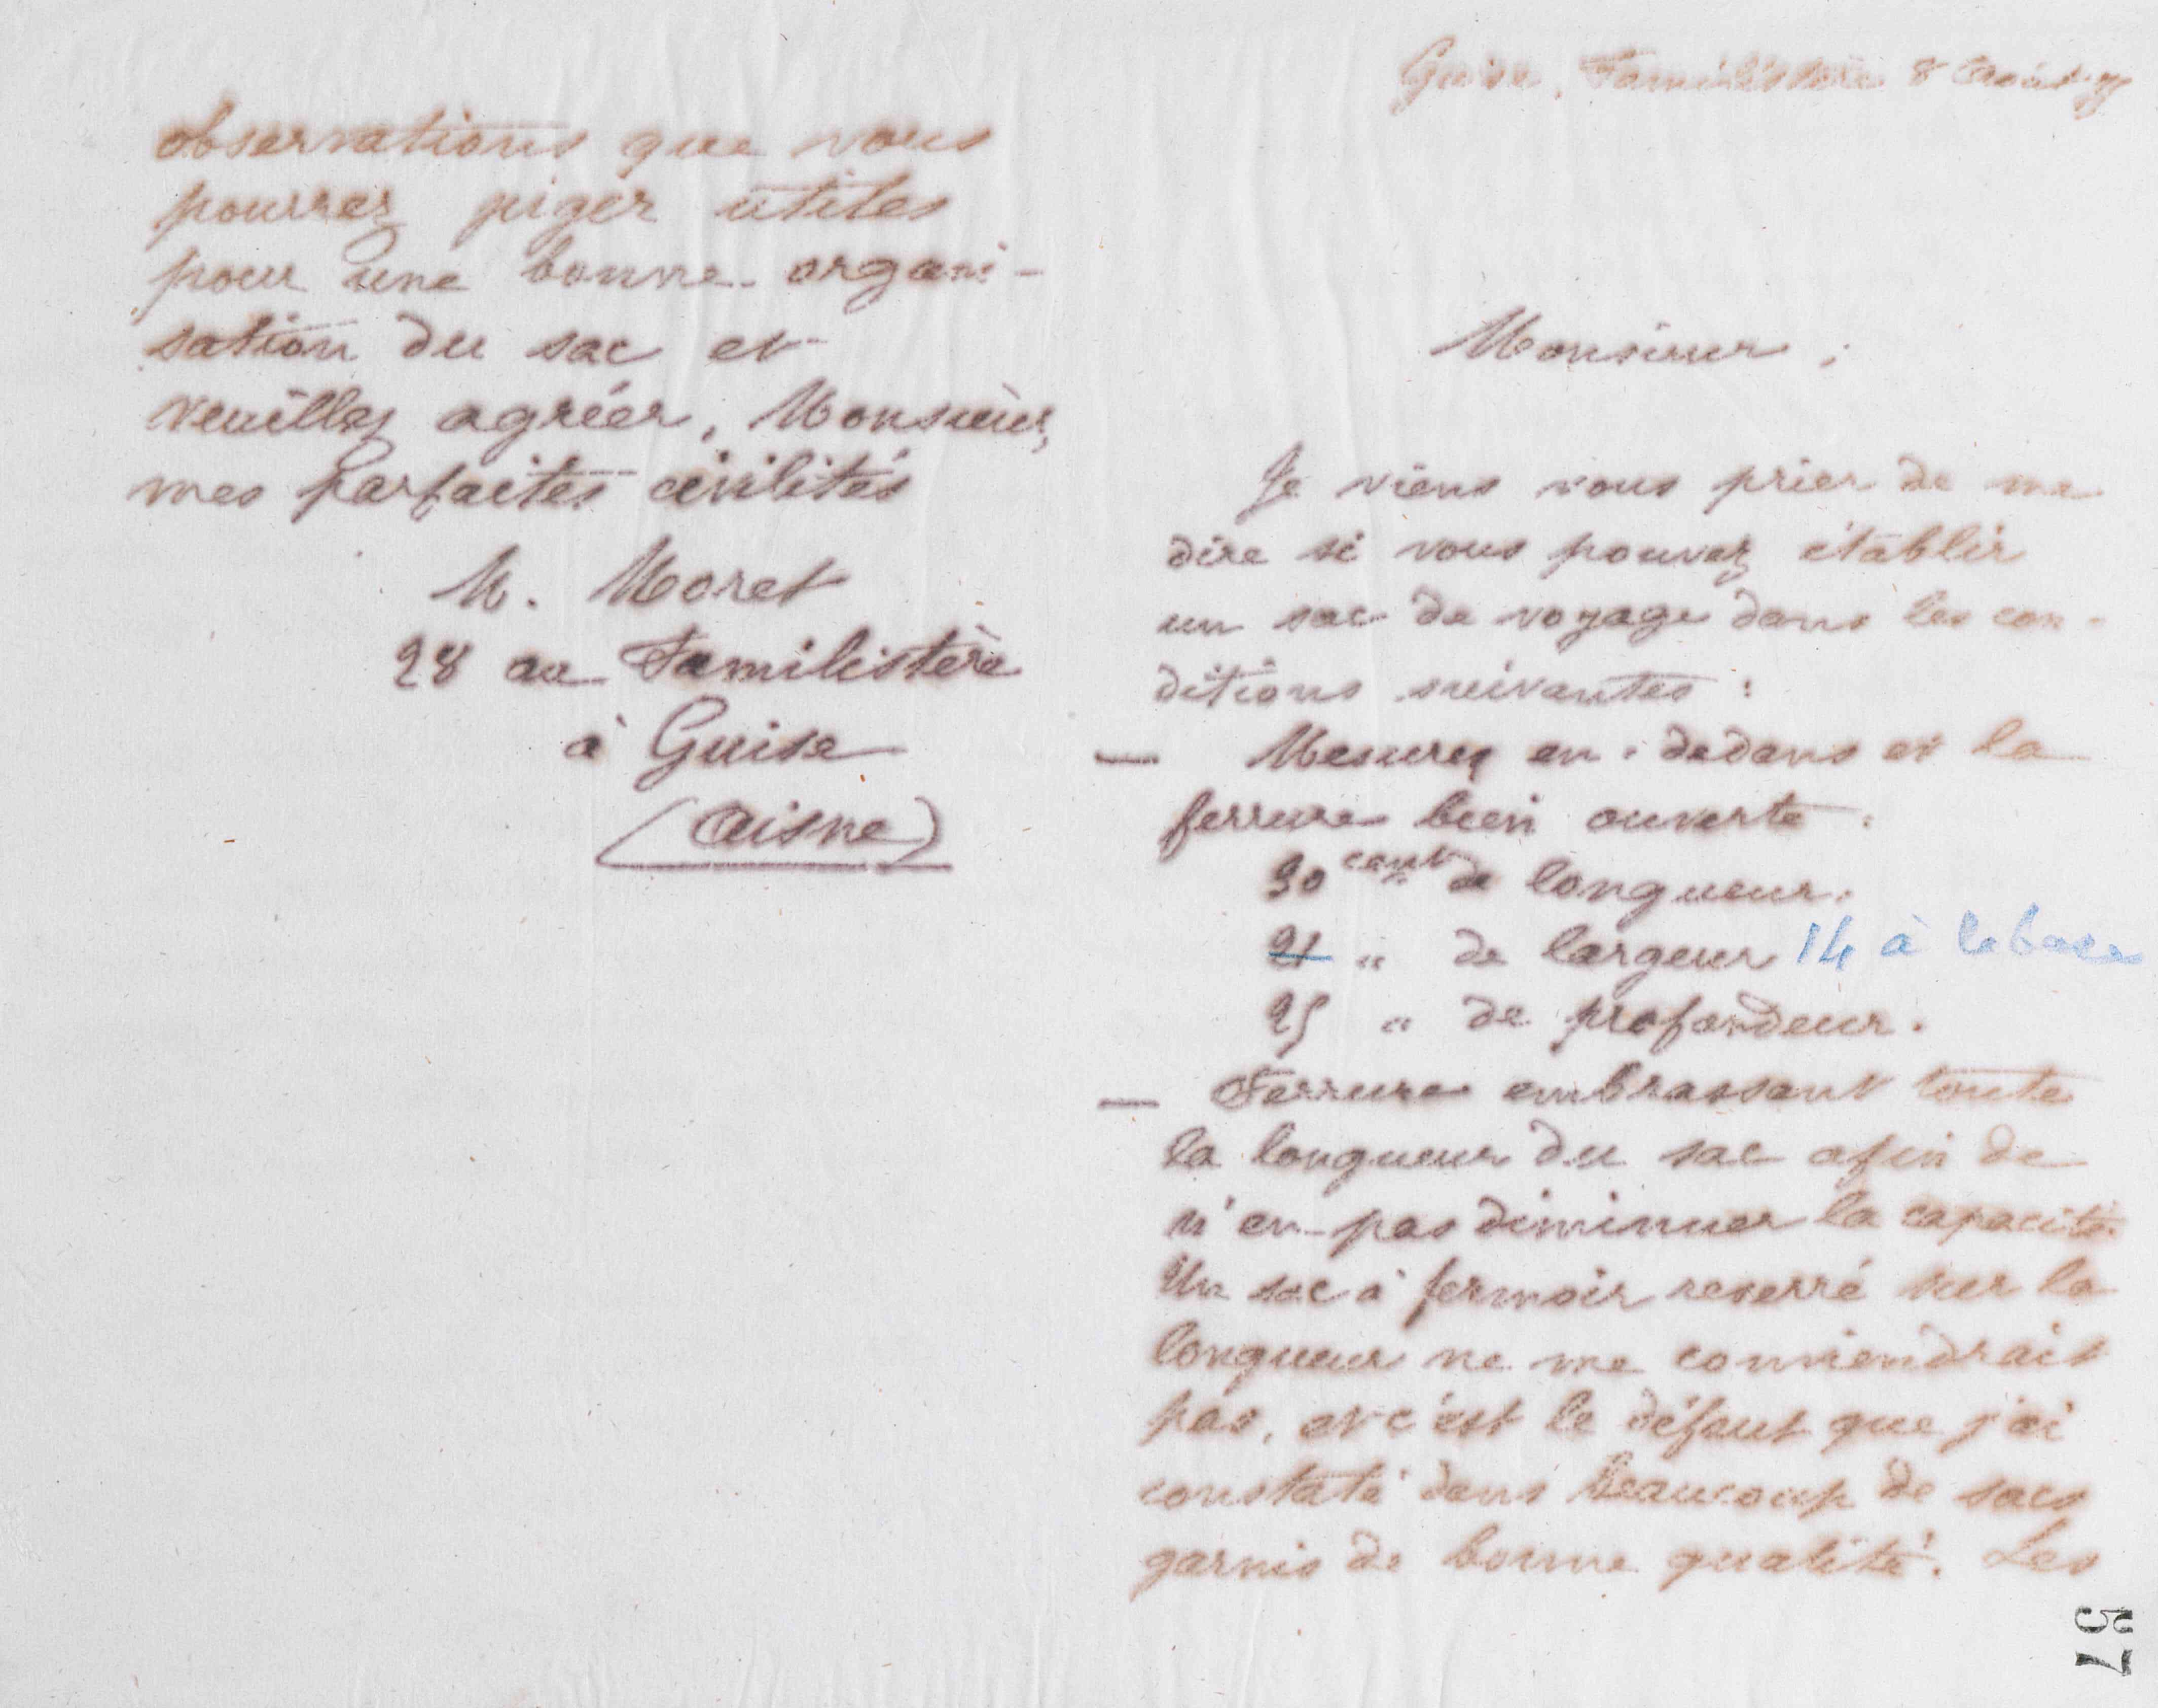 Guise, Familistère 8 Août
Monsieur,
Je viens vous prier de me
dire si vous pouvez établir
un sac de voyage dans les con-
ditions suivantes :
— Mesures en-dedans et la
ferrure bien ouverte :
30 cent de longueur.
21 " de largeur 14 à la base
25 " de profondeur.
— Ferrure embrassant toute
la longueur du sac afin de
n'en pas diminuer la capacité.
Un sac à fermoir reserré sur la
longueur ne me conviendrait
pas, et c'est le défaut que j'ai
constaté dans beaucoup de sacs
garnis de bonne qualité. Les
57
observations que vous
pourrez juger utiles
pour une bonne organi-
sation du sac et
veuillez agréer, Monsieur,
mes parfaites civilités
M. Moret
28 au Familistère
à Guise
(Aisne)